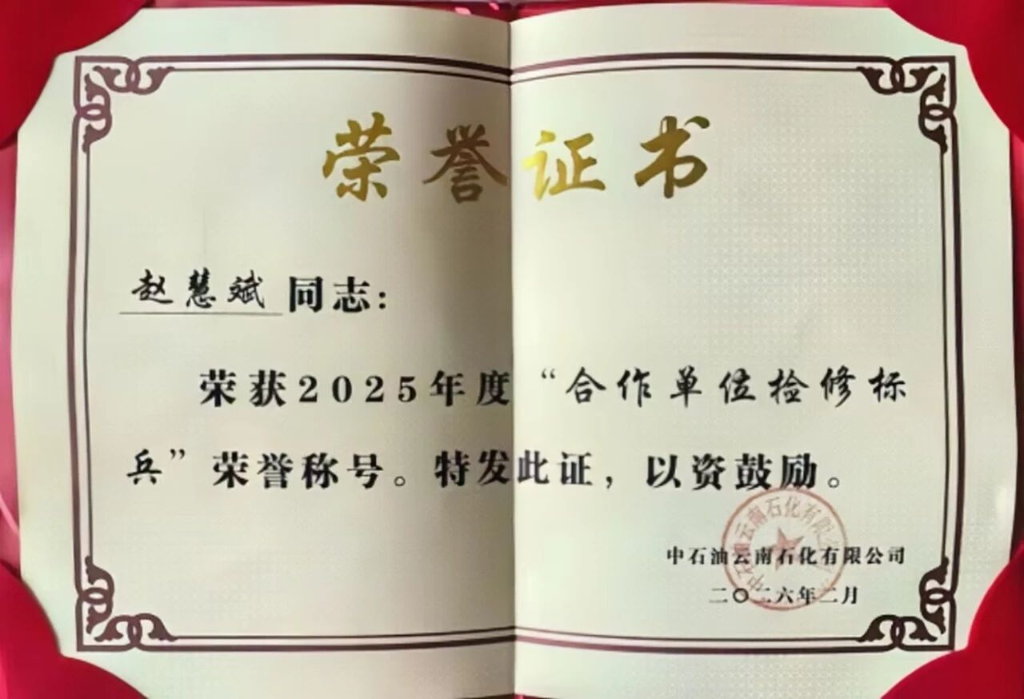 荣誉证书
赵慧斌同志：
荣获2025年度“合作单位检修标
兵”荣誉称号。特发此证，以资鼓励。
中石油云南石化有限公司
二〇二六年二月